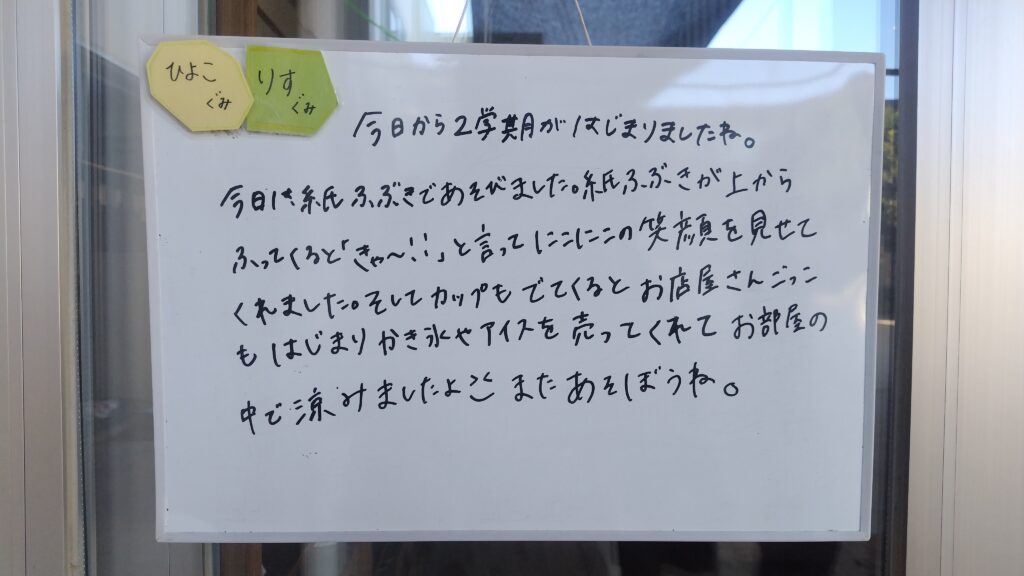 ひよこ
ぐみ
りす
ぐみ
今日から2学期がはじまりましたね。
今日は紙ふぶきであそびました。紙ふぶきが上から
ふってくると「きゃ〜!!」と言ってにこにこの笑顔を見せて
くれました。そしてカップもでてくるとお店屋さんごっこ
もはじまりかき氷やアイスを売ってくれてお部屋の
中で涼みましたよ またあそぼうね。